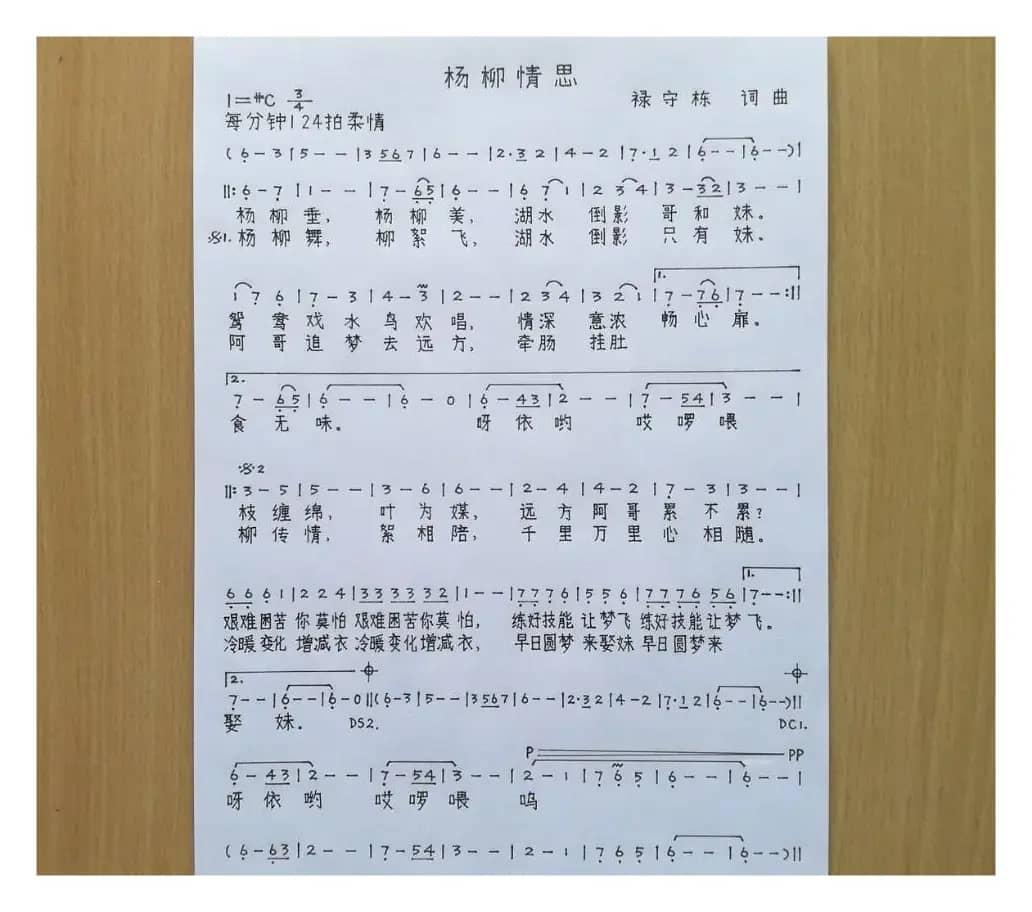 杨柳情思
1=#C 3/4 禄守栋 词曲
每分钟124拍柔情
(6-3|5--|3 567|6--|2·3 2|4-2|7·1 2|6--|6--)|
‖:6-7|1--|7-65|6--|6 7 1|2 3 4|3-32|3--|
杨柳垂, 杨柳美, 湖水 倒影 哥和妹。
𝄋1. 杨柳舞, 柳絮飞, 湖水 倒影 只有妹。
1.
1 7 6|7-3|4-3|2--|2 3 4|3 2 1|7-76|7--:‖
鸳鸯戏水鸟欢唱, 情深 意浓 畅心扉。
阿哥追梦去远方, 牵肠 挂肚
2.
7-65|6--|6-0|6-43|2--|7-54|3--|
食无味。 呀依哟 哎啰喂
𝄋2
‖:3-5|5--|3-6|6--|2-4|4-2|7-3|3--|
枝缠绵, 叶为媒, 远方阿哥累不累?
柳传情, 絮相陪, 千里万里心相随。
1.
66 6 1|2 2 4|33 33 32|1--|77 76|5 5 6|77 76 56|7--:‖
艰难困苦 你莫怕 艰难困苦你莫怕, 练好技能 让梦飞 练好技能让梦飞。
冷暖变化 增减衣 冷暖变化增减衣, 早日圆梦 来娶妹 早日圆梦来
2.
7--|6--|6-0‖(6-3|5--|3 567|6--|2·3 2|4-2|7·1 2|6--|6--)‖
娶妹。 DS2. DC1.
P PP
6-43|2--|7-54|3--|2-1|7 6 5|6--|6--|
呀依哟 哎啰喂 呜
(6-63|2--|7-54|3--|2-1|7 6 5|6--|6--)‖